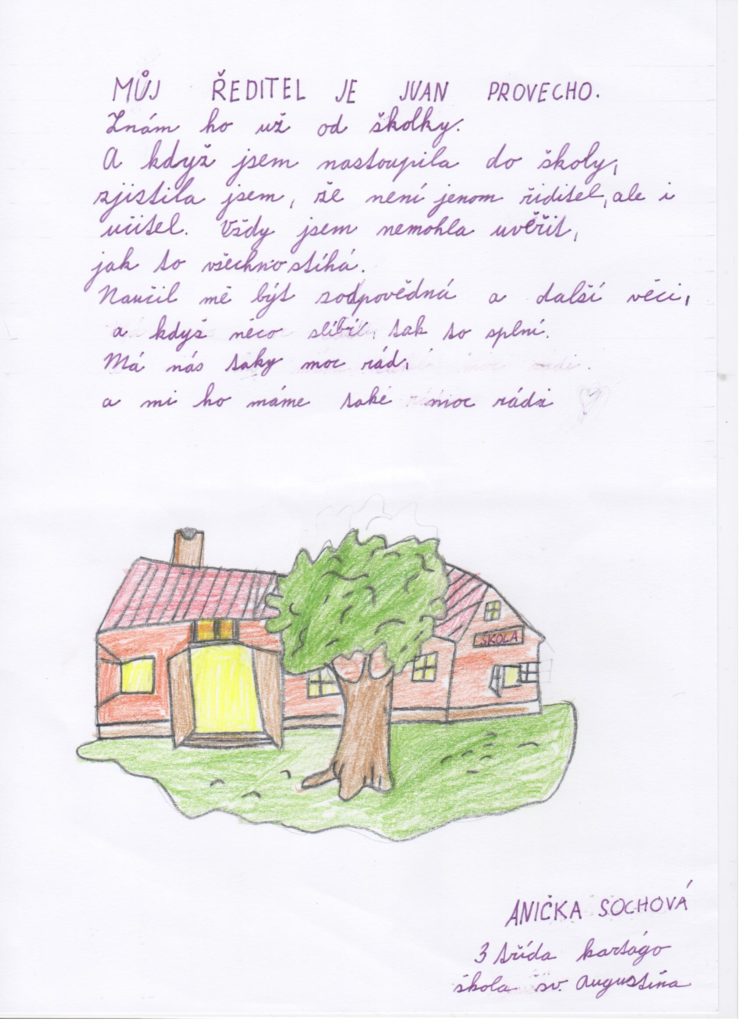 MŮJ ŘEDITEL JE JVAN PROVECHO.
Znám ho už od školky.
A když jsem nastoupila do školy,
zjistila jsem, že není jenom řiditel, ale i
učitel. Vždy jsem nemohla uvěřit,
jak to všechno stíhá.
Naučil mě být zodpovědná a další věci,
a když něco slíbil, tak to splní.
Má nás taky moc rád,
a mi ho máme také moc rádi
ŠKOLA
ANIČKA SOCHOVÁ
3 třída kartágo
škola sv. Augustina